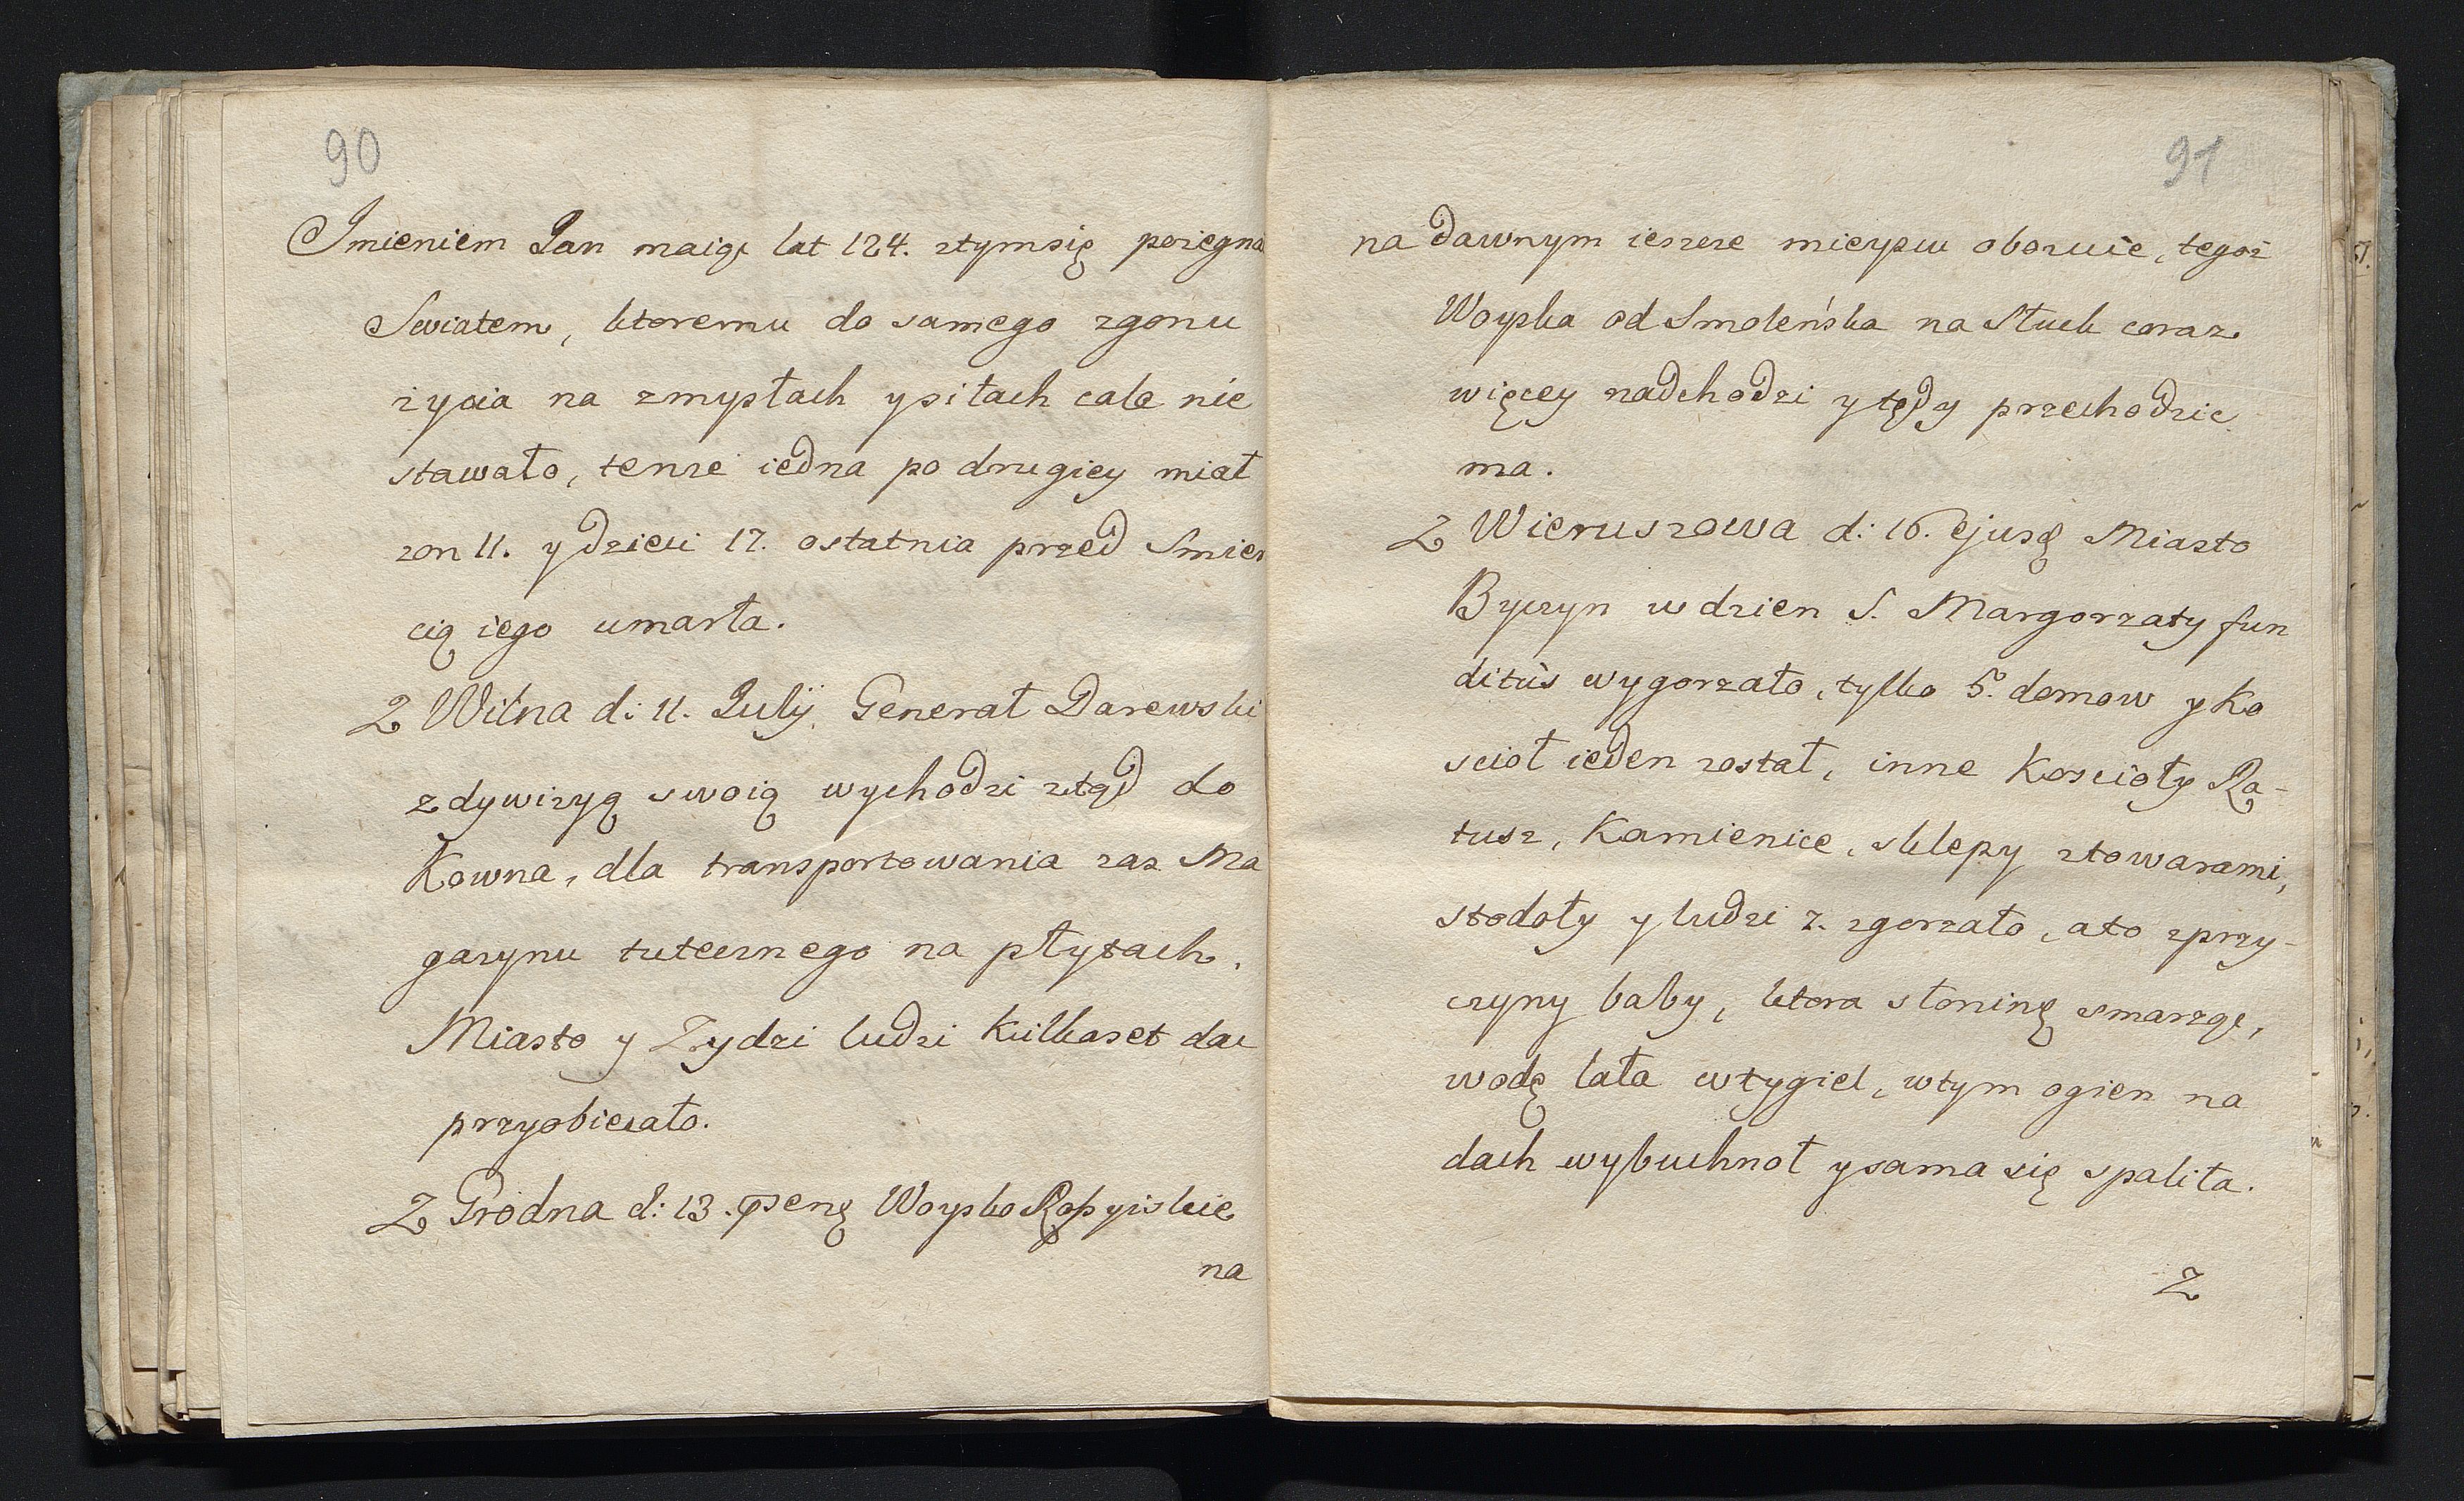 90
Imieniem Jan maiąc lat 124. ztymsię pożegna
Swiatem, ktoremu do samego zgonu
życia na zmysłach ysiłach cale nie
stawało, tenże iedna po drugiey miał
żon 11. ydzieci 17. ostatnia przed Smier
cią iego umarła.
Z Wilna d: 11. Julij. Generał Darewski
zdywizyą swoią wychodzi ztąd do
Kowna, dla transportowania zas Ma
gazynu tutecznego na płytach,
Miasto y Zydzi ludzi kilkaset dac
przyobiecało.
Z Grodna d: 13. Woysko Rossyiskie
na
91
na dawnym ieszcze mieyscu obozuie, tegoż
Woyska od Smoleńska na Słuck coraz
więcey nadchodzi ytędy przechodzic
ma.
Z Wieruszowa d: 16. ejusd Miasto
Byczyn wdzien S. Margorzaty fun
ditùs wygorzało, tylko 5. domow y Ko
scioł ieden został, inne Koscioły Ra-
tusz, Kamienice, sklepy ztowarami,
stodoły y ludzi 2. zgorzało, ato zprzy-
czyny baby, ktora słoninę smarząc,
wodę lała wtygiel, wtym ogien na
dach wybuchnoł ysama się spaliła.
Z